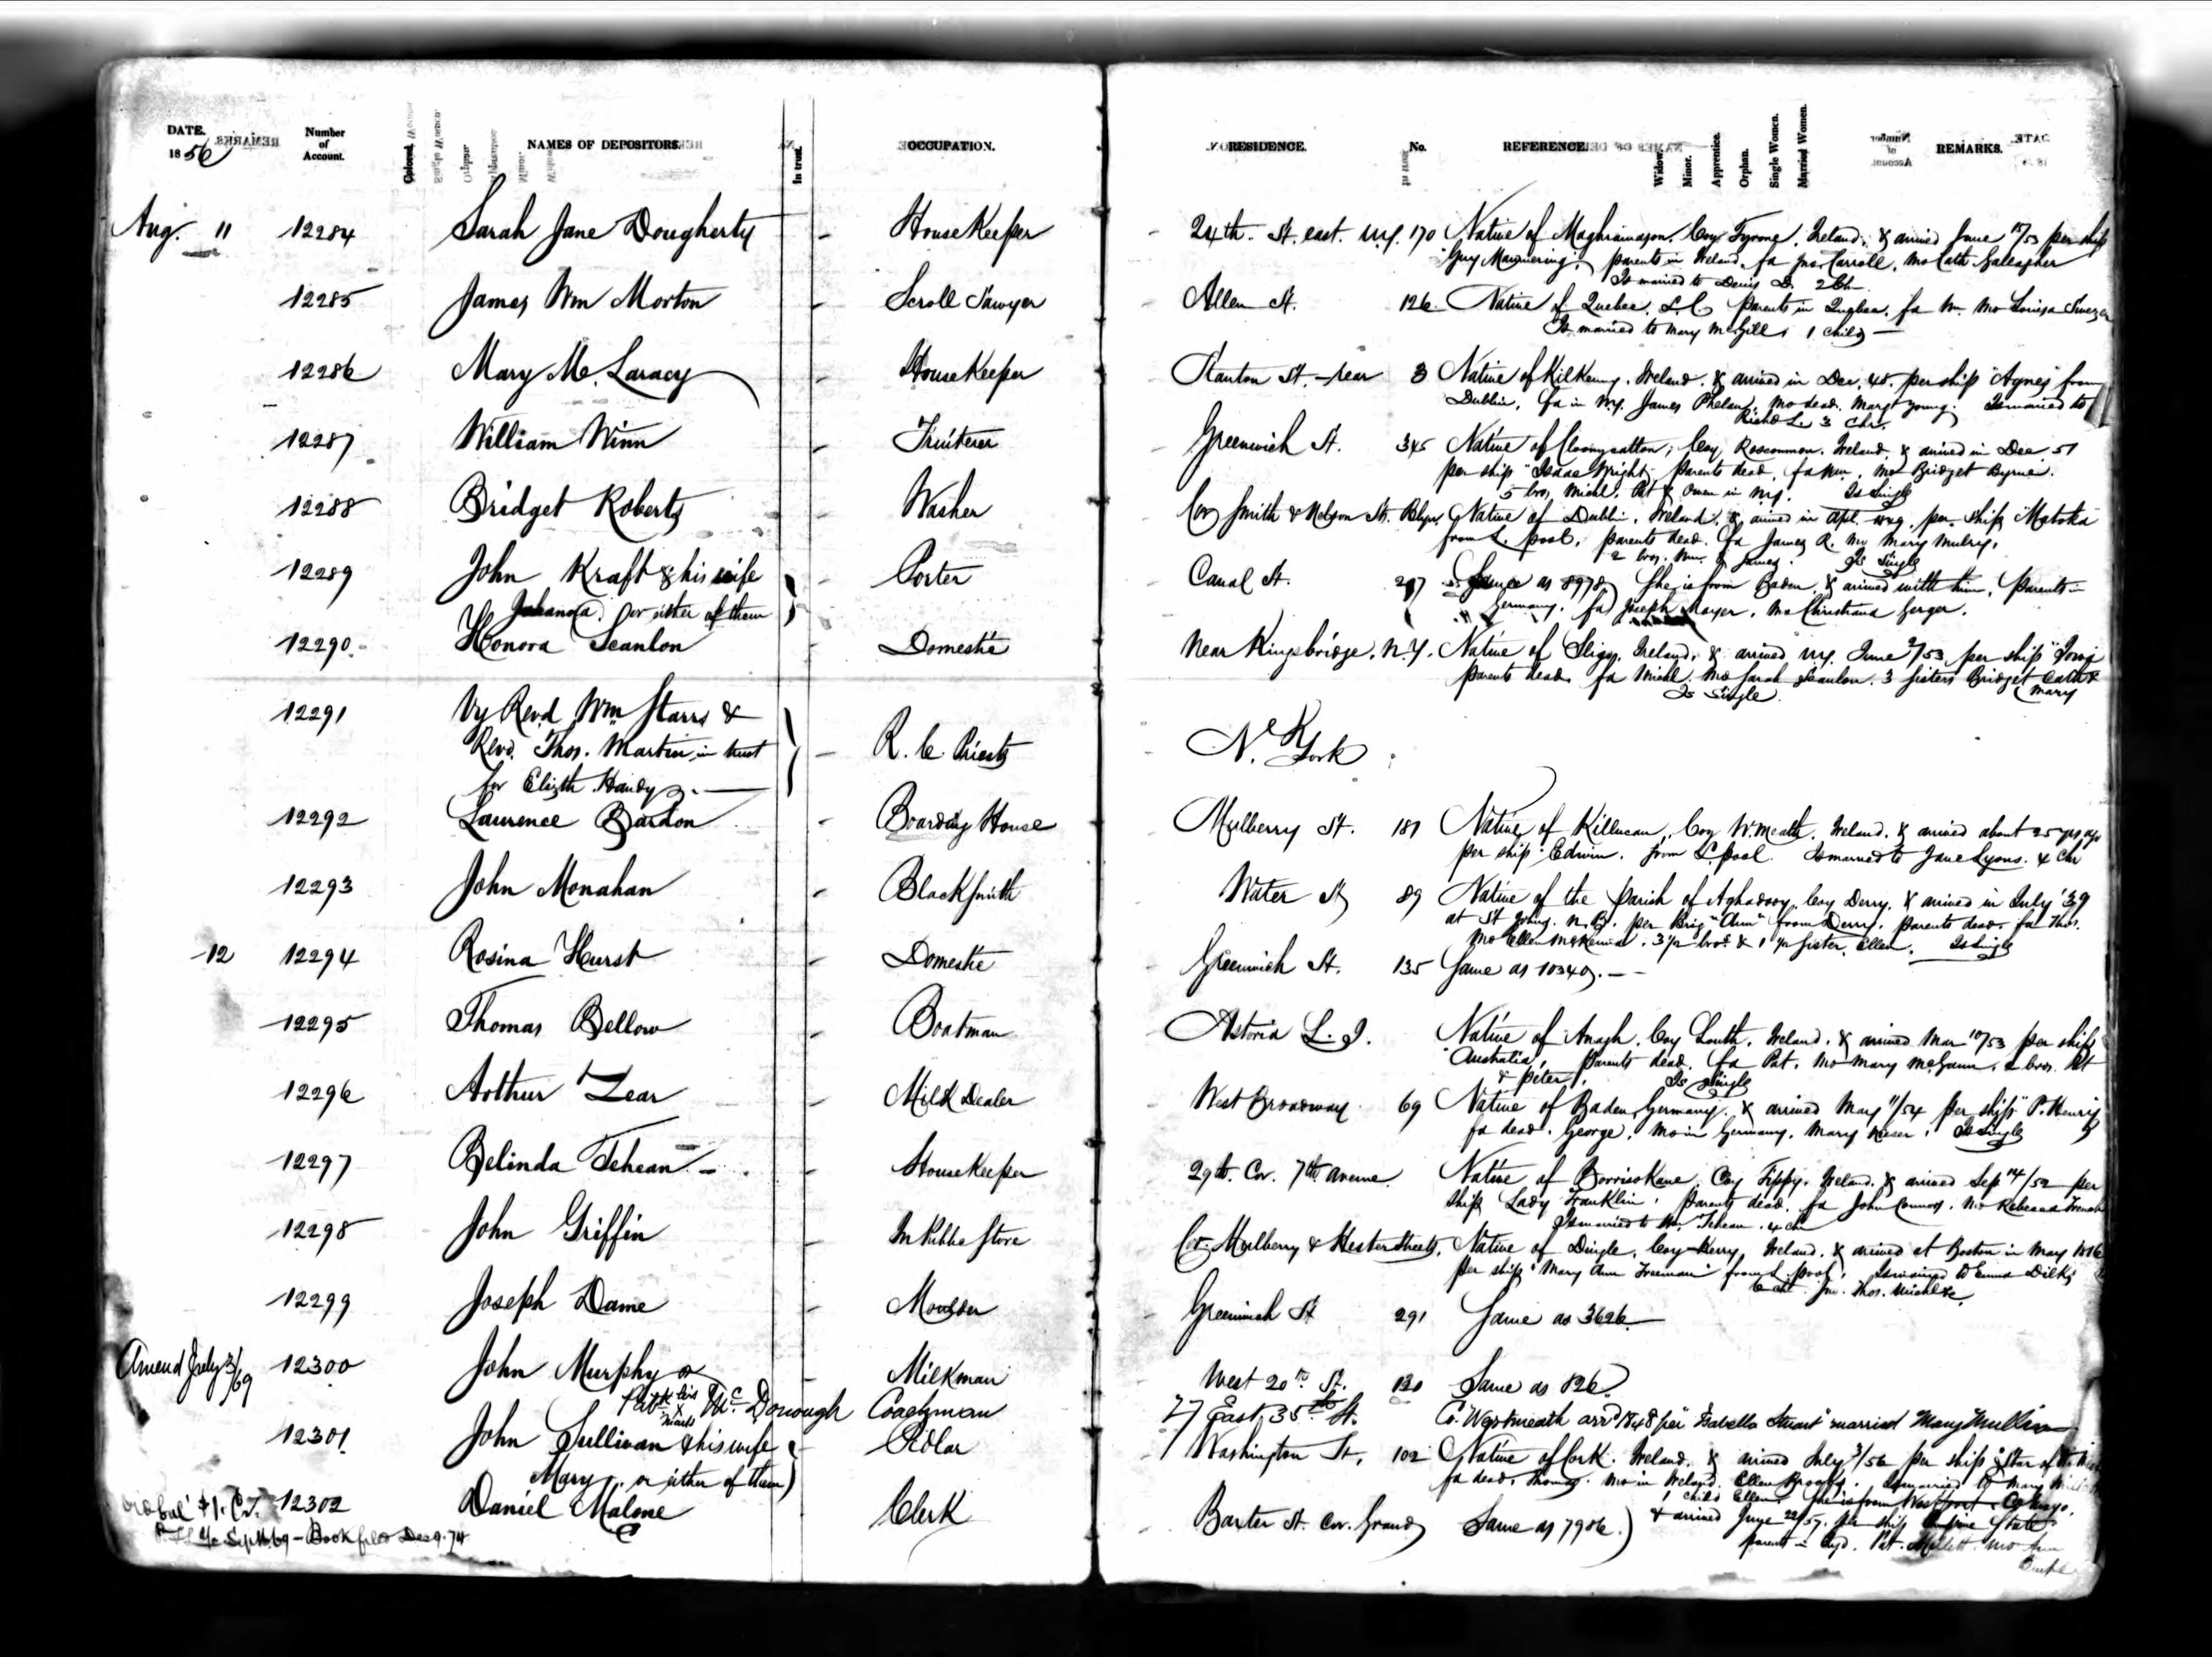 DATE.
1856
Number of Account.
NAMES OF DEPOSITORS.
In trust.
OCCUPATION.
RESIDENCE.
No.
REFERENCE.
Widow.
Minor.
Apprentice.
Orphan.
Single Women.
Married Women.
REMARKS.
Aug. 11 12284 Sarah Jane Dougherty - HouseKeeper - 24th. St. east. N.Y. 170 Native of Coy Tyrone. Ireland. & arrived June /53 per ship
"Guy Mannering", parents in Ireland. fa Jno. Carroll. mo Cath Gallagher
Is married to Denis D. 2 Ch.
12285 James Wm Morton - Scroll Sawyer - Allen St. 126 Native of Quebec. L.C. Parents in Quebec. fa Wm. mo Louisa
Is married to Mary McGill 1 Child -
12286 Mary M. Laracy - HouseKeeper - Stanton St. - rear 3 Native of KilKenny. Ireland. & arrived in Dec. 48. per ship "Agnes" from
Dublin. fa in N.Y. James Phelan. mo dead. Margt Young. Is married to
Richd L. 3 Chn.
12287 William Winn - Fruiterer - Greenwich St. 345 Native of Coy Roscommon. Ireland. & arrived in Dec 51
per ship "Isaac Wright" parents dead. fa Wm. mo Bridget Byrne.
5 bros, Michl. Pat & Owen in N.Y. Is Single
12288 Bridget Roberts - Washer - Cor Smith & Nelson Sts. Blyn. Native of Dublin. Ireland. & arrived in Apl. per ship "Matoka"
from L. pool. parents dead. fa James R. mo Mary Mulry.
2 bros. Wm. & James. Is Single
12289 John Kraft & his wife - Porter - Canal St. Same as 8978. She is from Baden & arrived with him. Parents in
Johanna. or either of them Germany. fa Joseph Mayer. mo Christiana Gerger.
12290 Honora Scanlon - Domestic - Near Kingsbridge. N.Y. Native of Sligo. Ireland. & arrived N.Y. June /53 per ship
parents dead. fa Michl. mo Sarah Scanlon. 3 sisters Bridget Cath &
Mary
Is Single
12291 Vy Revd. Wm Starrs &
Revd. Thos. Martin in trust - R. C. Priests - N. York
for Elizth. Handy. -
12292 Laurence Bardon - Boarding House - Mulberry St. 181 Native of Killucan. Coy W. Meath. Ireland. & arrived about 25 yrs ago
per ship "Edwin. from L. pool. Is married to Jane Lyons. 4 Chn
12293 John Monahan - BlackSmith - Water St 89 Native of the Parish of Aghadoey. Coy Derry. & arrived in July '39
at St Johns. N.B. per Brig "Ann" from Derry. parents dead. fa Thos.
mo Ellen McKenna. 3 bros & 1 sister. Ellen. Is Single
-12 12294 Rosina Hurst - Domestic - Greenwich St. 135 Same as 10340. -
12295 Thomas Bellow - Boatman - Astoria L.I. Native of Coy Louth. Ireland. & arrived Mar 10/53 per ship
"Australia". Parents dead. fa Pat. mo Mary McGann. 2 bros. Pat
& Peter. Is Single
12296 Arthur Lear - Milk Dealer - West Broadway 69 Native of Baden, Germany. & arrived May 11/54 per ship "P. Henry
fa dead. George. mo in Germany. Mary Is Single
12297 Belinda Tehean - HouseKeeper - 29th. Cor. 7th Avenue. Native of Borrisokane. Coy Tippy. Ireland. & arrived Sep 14/52 per
ship Lady Franklin. Parents dead. fa John Connor. mo Rebecca French
Is married to Wm. Tehean. 4 chn
12298 John Griffin - In Public Store - Cor. Mulberry & Hester Streets. Native of Dingle. Coy Kerry. Ireland. & arrived at Boston in May
per ship "Mary Ann Freeman" from L. pool. Is married to Emma Dilks
6 chn. Jno. Thos. Michl &c.
12299 Joseph Dame - Moulder - Greenwich St 291 Same as 3626. -
Amend July 3/69 12300 John Murphy or - Milkman West 20th. St. 130 Same as 826.
Patk his X mark McDonough Coachman 27 East 35th St. Co. Westmeath arrd 1848 per "Isabella Stuart" married Mary Mullin
12301 John Sullivan & his wife - Pedlar - Washington St. 102 Native of Cork. Ireland. & arrived July 3/56 per ship "Star of the West
Mary, or either of them fa dead. Thomas. mo in Ireland. Ellen Is married to Mary
1 child Ellen. She is from Westport Co Mayo.
12302 Daniel Malone Clerk Baxter St. Cor. Grand Same as 7986.) & arrived per ship Empire State.
Sept 69 - Book filed Dec 9. 74 parents in Pat. mo Ann
Burke